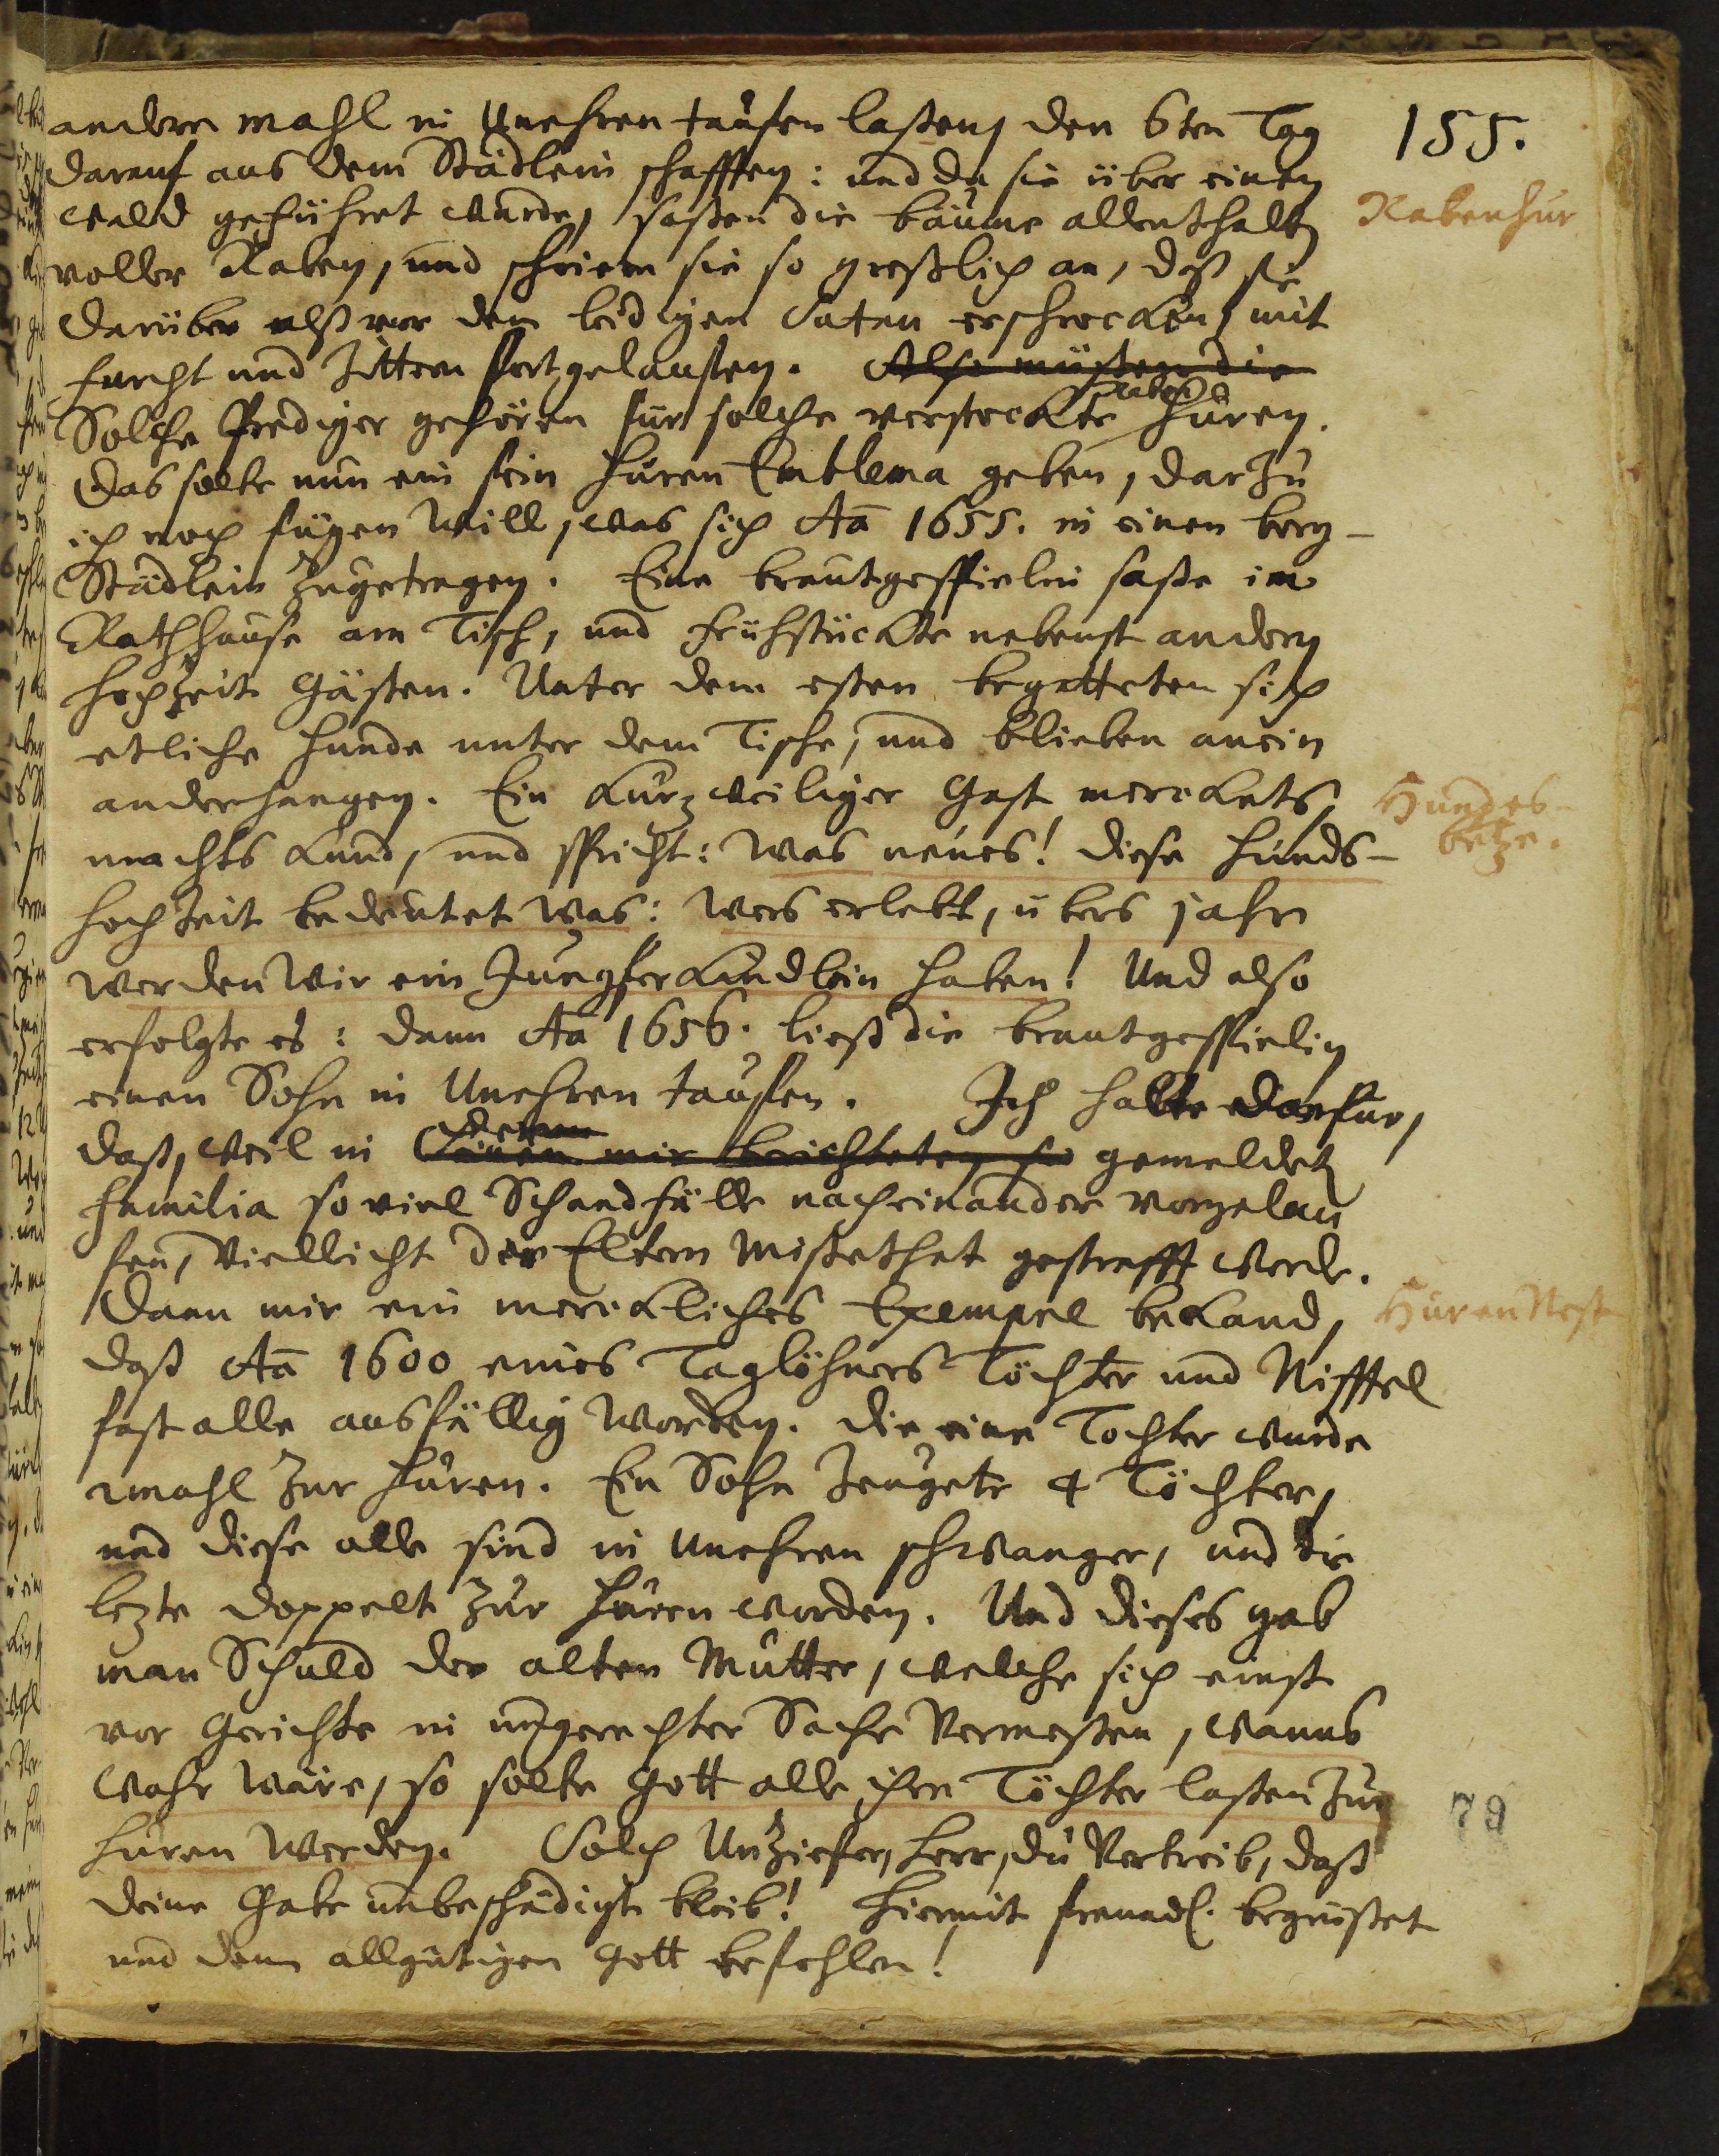 andere mahl in Unehren taufen laßen, den 6ten Tag
155.
darauf aus dem Städlein schafften: und da sie über einen
Wald geführet wurde, saßen die bäume allenthalben
Rabenhur
voller Raben, und schrien sie so greßlich an, daß sie
darüber alß vor dem leidigen Satan erschrocken, mit
furcht und Zittern fortgelauffen. Also müsten die
Solche Prediger gehören für solche verstockte Raben Huren.
Das solte nun ein fein Huren Emblema geben, darzu
ich noch fügen will, was sich Aõ 1655. in einen berg-
Städlein zugetragen. Eine brautgespielin saße im
Rathhause am Tisch, und frühstückte nebenst andern
hochzeit Gästen. Unter dem eßen begatteten sich
etliche Hunde unter dem Tische, und blieben anein
anderhangen. Ein kurzweiliger Gast merckets,
Hundes-
machts kund, und spricht: was neues! diese Hunds-
betze.
hochzeit bedeutet was: wers erlebt, übers jahr
werden wir ein Jungferkindlein haben! Und also
erfolgte es: dann Aõ 1656. ließ die brautgespielin
einen Sohn in Unehren tauffen. Ich halte darfur,
daß, weil in mir berichteten gemeldten
familia so viel Schandfälle nacheinander vorgelau
fen, Vielleicht der Eltern Mißethat gestrafft werde.
Dann mir ein merckliches Exempel bekand,
HurenNest
daß Aõ 1600 eines Taglöhners Töchter und Nifftel
fast alle ausfällig worden. Die eine Tochter wurde
2mahl zur Huren. Ein Sohn zeugete 4 Töchter,
und diese alle sind in Unehren schwanger, und die
lezte doppelt zur Huren worden. Und dieses gab
man Schuld der alten Mutter, welche sich einst
vor Gerichte in ungerechter Sache Vermeßen, wanns
wahr wäre, so solte Gott alle ihre Töchter laßen zur
79
Huren werden. Solch Unziefer, Herr, du Vertreib, daß
deine Gabe unbeschädigt bleib! Hiermit freundl. begrüßet
und dem allgütigen Gott befohlen!